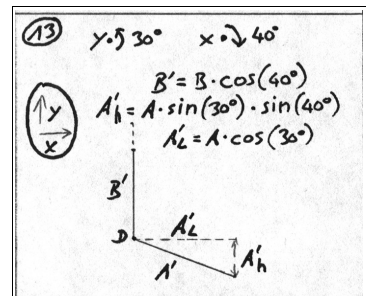 13 Y· 30° X· 40°
B' = B · cos(40°)
A'h = A · sin(30°) · sin(40°)
A'L = A · cos(30°)
Y
X
B'
A'L
D
A'
A'h